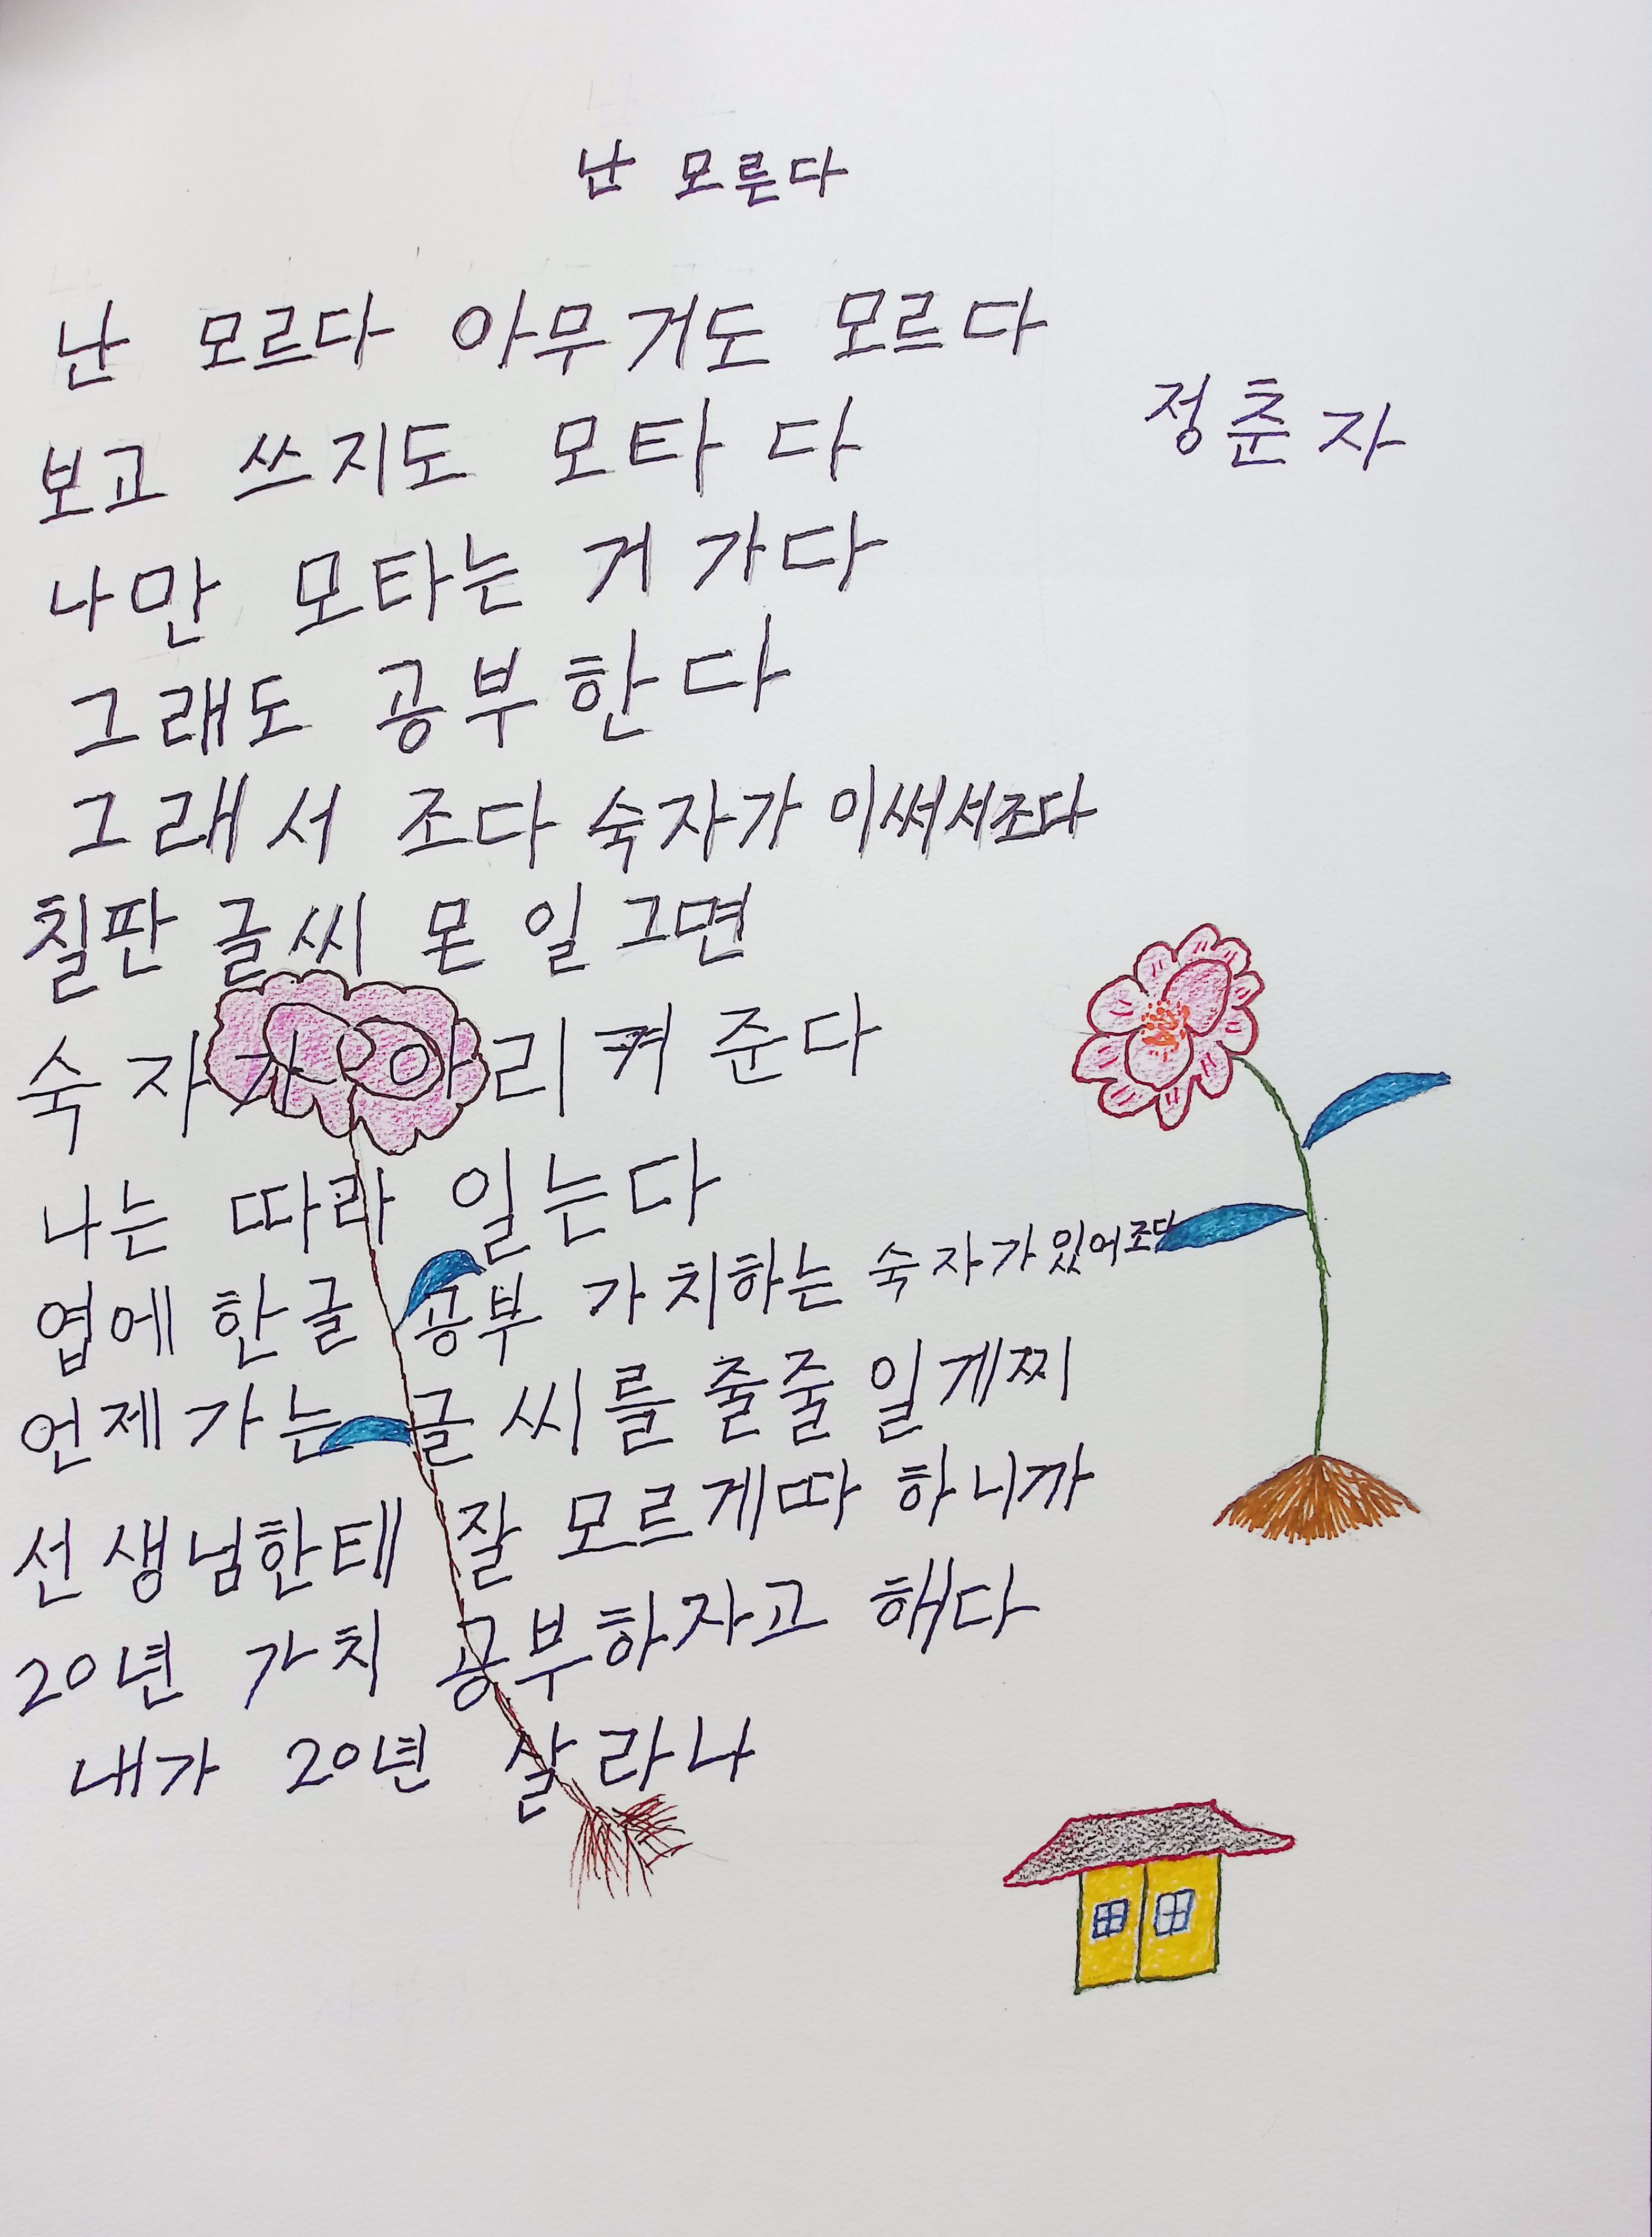 난 모른다
난 모르다 아무거도 모르다
정춘자
보고 쓰지도 모타다
나만 모타는 거 가다
그래도 공부한다
그래서 조다 숙자가 이써서조다
칠판 글씨 몬 일그면
숙자가 아리켜 준다
나는 따라 일는다
엽에 한글 공부 가치하는 숙자가 있어조다
언제가는 글씨를 줄줄 일게찌
선생님한테 잘 모르게따 하니까
20년 가치 공부하자고 해다
내가 20년 살라나